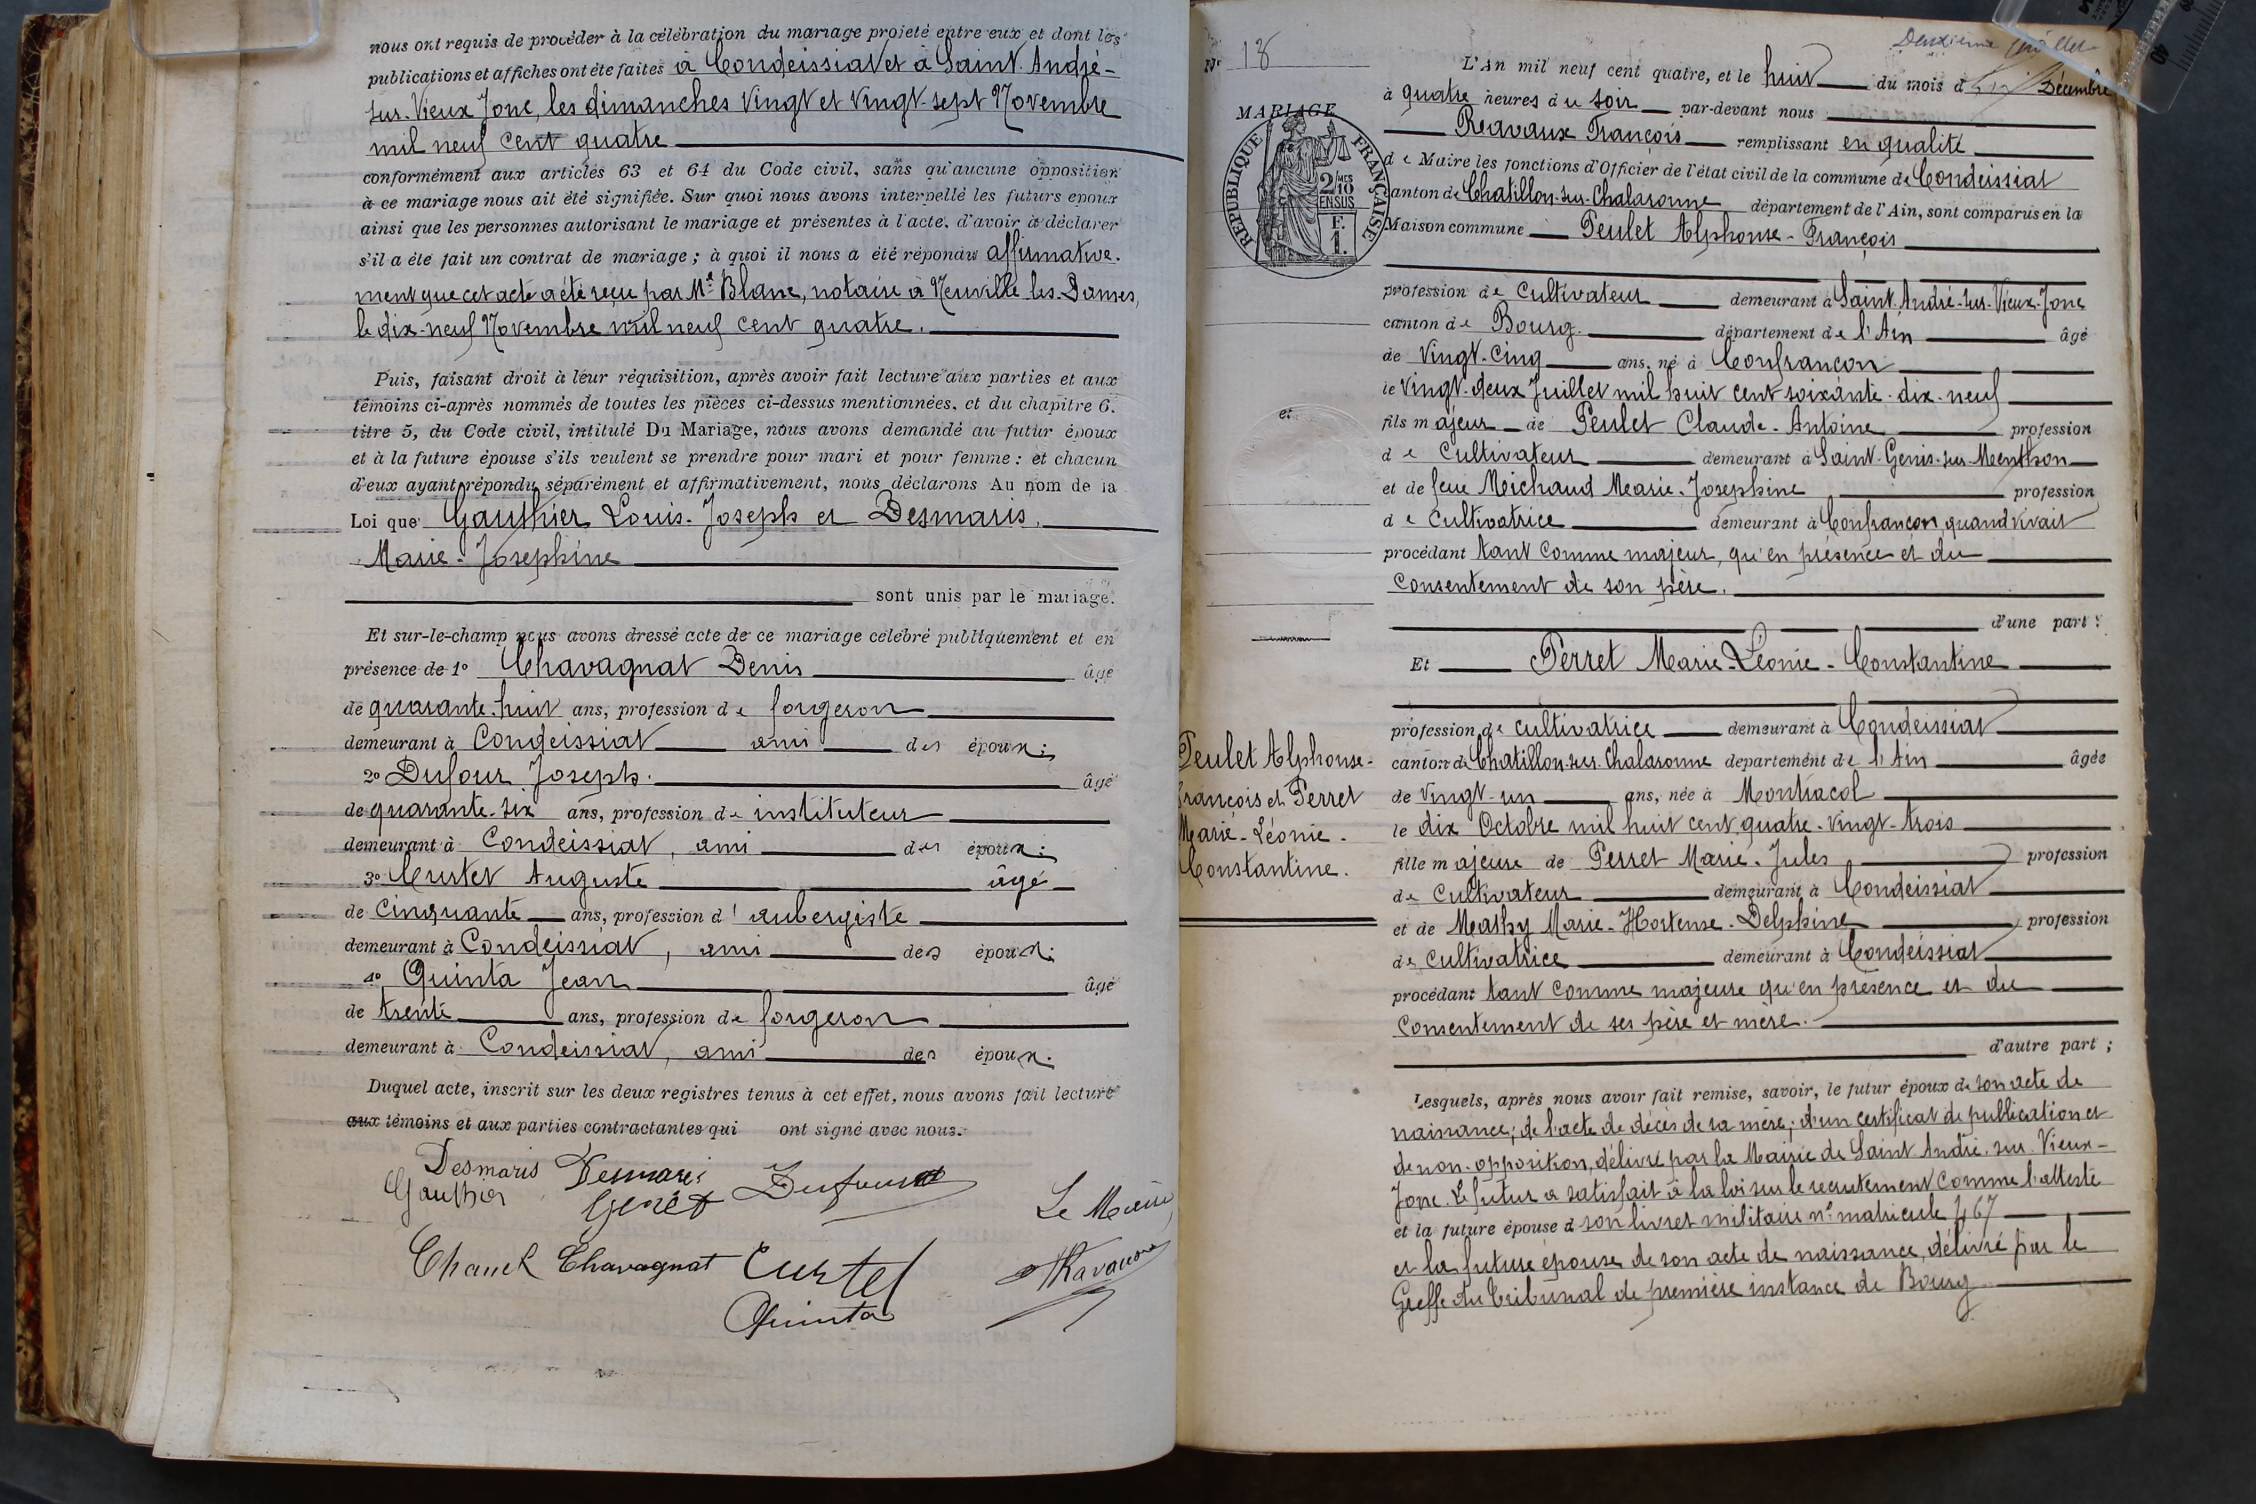 nous ont requis de procéder à la célébration du mariage projeté entre eux et dont les
publications et affiches ont été faites à Condeissiat et à Saint-André-
sur-Vieux Jonc, les dimanches Vingt et Vingt-sept Novembre
mil neuf cent quatre
conformément aux articles 63 et 64 du Code civil, sans qu'aucune opposition
à ce mariage nous ait été signifiée. Sur quoi nous avons interpellé les futurs époux
ainsi que les personnes autorisant le mariage et présentes à l'acte, d'avoir à déclarer
s'il a été fait un contrat de mariage ; à quoi il nous a été répondu affirmative-
ment que cet acte a été reçu par Me Blanc, notaire à Neuville-les-Dames,
le dix-neuf Novembre mil neuf cent quatre.
Puis, faisant droit à leur réquisition, après avoir fait lecture aux parties et aux
témoins ci-après nommés de toutes les pièces ci-dessus mentionnées, et du chapitre 6.
titre 5, du Code civil, intitulé Du Mariage, nous avons demandé au futur époux
et à la future épouse s'ils veulent se prendre pour mari et pour femme : et chacun
d'eux ayant répondu séparément et affirmativement, nous déclarons Au nom de la
Loi que Gauthier Louis-Joseph et Desmaris
Marie-Joséphine
sont unis par le mariage.
Et sur-le-champ nous avons dressé acte de ce mariage célébré publiquement et en
présence de 1° Chavagnat Denis âgé
de quarante-huit ans, profession de forgeron
demeurant à Condeissiat ami des époux ;
2° Dufour Joseph. âgé
de quarante-six ans, profession de instituteur
demeurant à Condeissiat, ami des époux ;
3° Curtet Auguste âgé
de cinquante ans, profession d'aubergiste
demeurant à Condeissiat, ami des époux ;
4° Quinta Jean âgé
de trente ans, profession de forgeron
demeurant à Condeissiat, ami des époux.
Duquel acte, inscrit sur les deux registres tenus à cet effet, nous avons fait lecture
aux témoins et aux parties contractantes qui ont signé avec nous.
Desmaris Desmaris Dufour
Gauthier
Le Maire,
Chavagnat Curtet Ravaux
Quinta
Deuxième
N° 18
MARIAGE
L'An mil neuf cent quatre, et le huit du mois d Décembre
à quatre heures du soir par-devant nous
Ravaux François remplissant en qualité
de Maire les fonctions d'Officier de l'état civil de la commune de Condeissiat
RÉPUBLIQUE FRANÇAISE
2/10 MES EN SUS
F. 1.
canton de Chatillon-sur-Chalaronne département de l'Ain, sont comparus en la
Maison commune Peulet Alphonse-François
profession de cultivateur demeurant à Saint-André-sur-Vieux-Jonc
canton de Bourg. département de l'Ain âgé
de Vingt-cinq ans, né à Confrançon
le Vingt-deux Juillet mil huit cent soixante-dix-neuf
et
fils majeur de Peulet Claude-Antoine profession
de cultivateur demeurant à Saint-Genis-sur-Menthon
et de feue Michaud Marie-Josephine profession
de cultivatrice demeurant à Confrançon, quand vivait
procédant tant comme majeur, qu'en présence et du
consentement de son père.
d'une part ;
Et Perret Marie-Léonie-Constantine
profession de cultivatrice demeurant à Condeissiat
Peulet Alphonse-
François et Perret
Marie-Léonie-
Constantine.
canton de Chatillon-sur-Chalaronne département de l'Ain âgée
de Vingt-un ans, née à Montracol
le dix Octobre mil huit cent quatre-vingt-trois
fille majeure de Perret Marie-Jules profession
de cultivateur demeurant à Condeissiat
et de Mathy Marie-Hortense-Delphine profession
de cultivatrice demeurant à Condeissiat
procédant tant comme majeure qu'en présence et du
consentement de ses père et mère.
d'autre part ;
Lesquels, après nous avoir fait remise, savoir, le futur époux de son acte de
naissance ; de l'acte de décès de sa mère ; d'un certificat de publication et
de non-opposition, délivré par la Mairie de Saint André-sur-Vieux-
Jonc. Le futur a satisfait à la loi sur le recrutement comme l'atteste
et la future épouse d son livret militaire n° matricule 467
et la future épouse de son acte de naissance, délivré par le
Greffe du Tribunal de première instance de Bourg